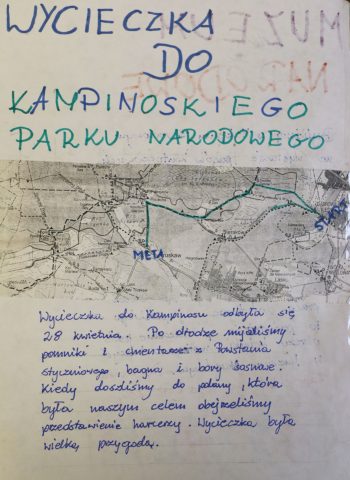 WYCIECZKA
DO
KAMPINOSKIEGO
PARKU NARODOWEGO
START
META
Wycieczka do Kampinosu odbyła się
28 kwietnia. Po drodze mijaliśmy
pomniki i cmentarze z Powstania
styczniowego, bagna i bory sosnowe.
Kiedy doszliśmy do polany, która
była naszym celem obejrzeliśmy
przedstawienie harcerzy. Wycieczka była
wielką przygodą.